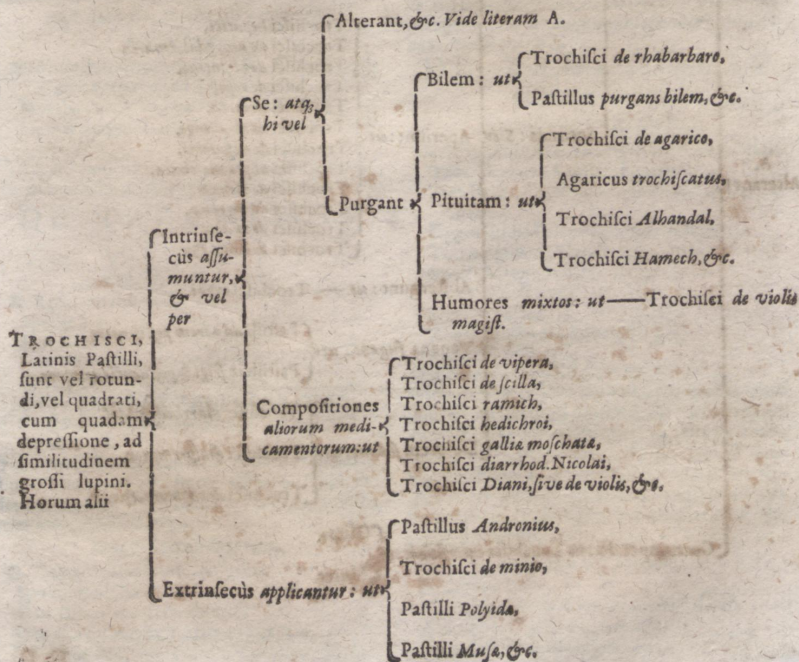 TROCHISCI,
Latinis Paſtilli,
ſunt vel rotun-
di, vel quadrati,
cum quadam
depreſſione, ad
ſimilitudinem
groſſi lupini.
Horum alii
Intrinſe-
cùs aſſu-
muntur,
& vel
per
Se: atq;
hi vel
Alterant, &c. Vide literam A.
Purgant
Bilem: ut
Trochiſci de rhabarbaro,
Paſtillus purgans bilem, &c.
Pituitam: ut
Trochiſci de agarico,
Agaricus trochiſcatus,
Trochiſci Alhandal,
Trochiſci Hamech, &c.
Humores mixtos: ut — Trochiſci de violis
magiſt.
Compoſitiones
aliorum medi-
camentorum: ut
Trochiſci de vipera,
Trochiſci de ſcilla,
Trochiſci ramich,
Trochiſci hedichroi,
Trochiſci galliæ moſchatæ,
Trochiſci diarrhod. Nicolai,
Trochiſci Diani, ſive de violis, &c.
Extrinſecùs applicantur: ut
Paſtillus Andronius,
Trochiſci de minio,
Paſtilli Polyidæ,
Paſtilli Muſæ, &c.